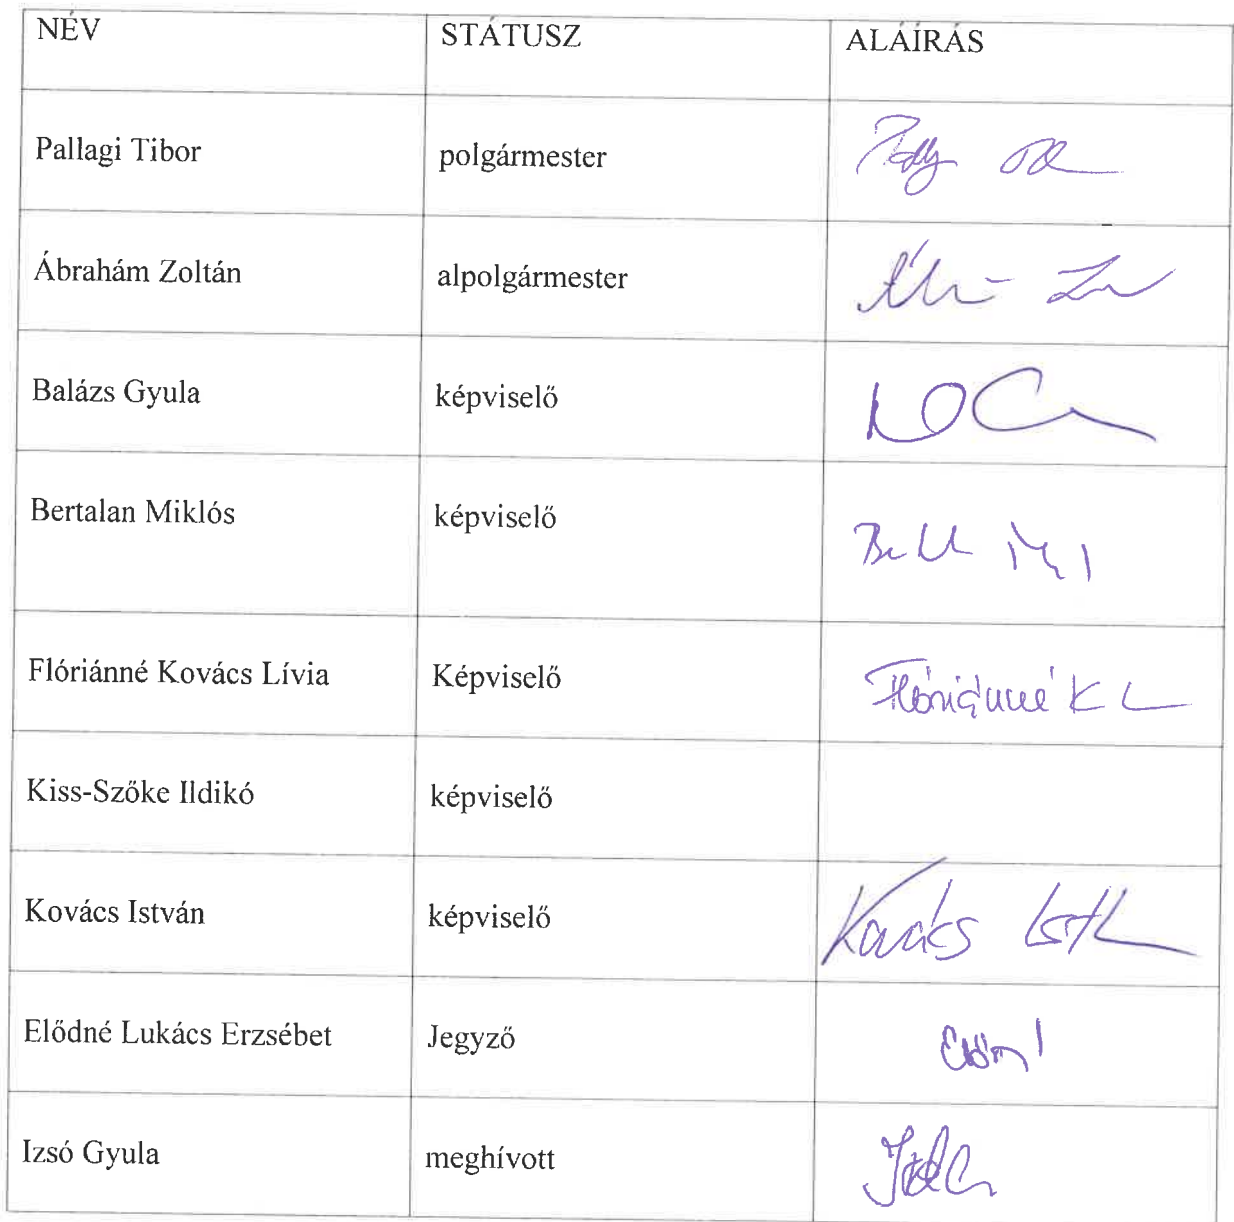 NÉV STÁTUSZ ALÁÍRÁS
Pallagi Tibor polgármester
Ábrahám Zoltán alpolgármester
Balázs Gyula képviselő
Bertalan Miklós képviselő
Flóriánné Kovács Lívia Képviselő Flóriánné K L
Kiss-Szőke Ildikó képviselő
Kovács István képviselő Kovács
Elődné Lukács Erzsébet Jegyző
Izsó Gyula meghívott